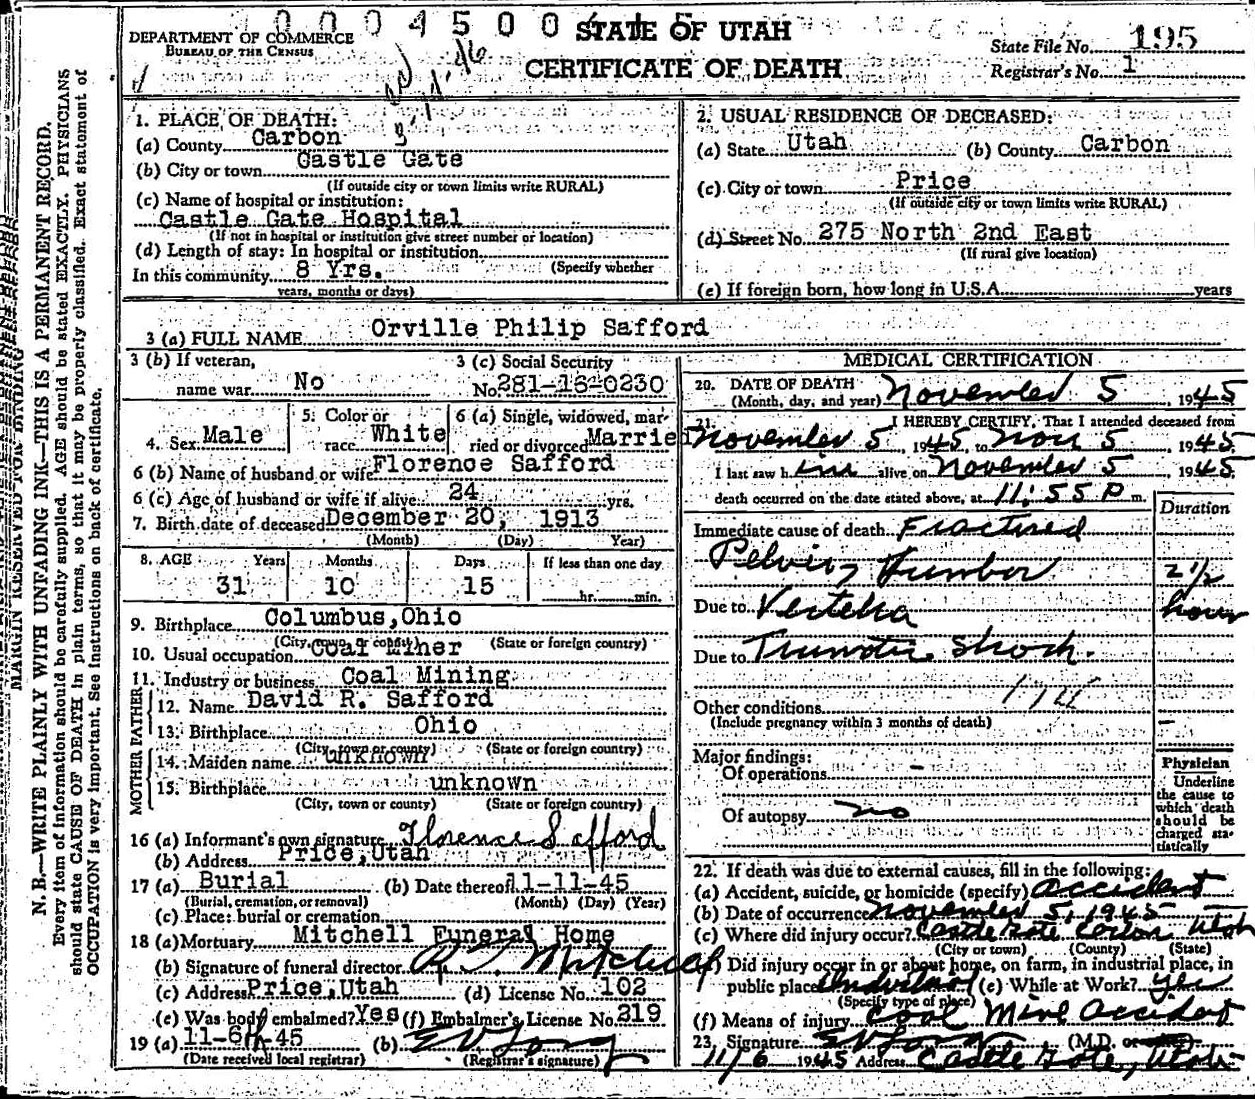 00045001
STATE OF UTAH
DEPARTMENT OF COMMERCE
BUREAU OF THE CENSUS
CERTIFICATE OF DEATH
State File No. 195
Registrar's No. 1
MARGIN RESERVED FOR BINDING
N. B.—WRITE PLAINLY WITH UNFADING INK—THIS IS A PERMANENT RECORD.
Every item of information should be carefully supplied. AGE should be stated EXACTLY. PHYSICIANS
should state CAUSE OF DEATH in plain terms, so that it may be properly classified. Exact statement of
OCCUPATION is very important. See instructions on back of certificate.
1. PLACE OF DEATH:
(a) County Carbon
(b) City or town Castle Gate
(If outside city or town limits write RURAL)
(c) Name of hospital or institution:
Castle Gate Hospital
(If not in hospital or institution give street number or location)
(d) Length of stay: In hospital or institution
In this community 8 Yrs. (Specify whether
years, months or days)
2. USUAL RESIDENCE OF DECEASED:
(a) State Utah (b) County Carbon
(c) City or town Price
(If outside city or town limits write RURAL)
(d) Street No. 275 North 2nd East
(If rural give location)
(e) If foreign born, how long in U.S.A. years
3 (a) FULL NAME Orville Philip Safford
3 (b) If veteran,
name war No
3 (c) Social Security
No. 281-16-0230
4. Sex Male
5. Color or
race White
6 (a) Single, widowed, mar-
ried or divorced Married
6 (b) Name of husband or wife Florence Safford
6 (c) Age of husband or wife if alive 24 yrs.
7. Birth date of deceased December 20, 1913
(Month) (Day) Year)
8. AGE Years Months Days If less than one day
31 10 15 hr. min.
9. Birthplace Columbus, Ohio
(City, town, or county) (State or foreign country)
10. Usual occupation Coal Miner
11. Industry or business Coal Mining
FATHER
12. Name David R. Safford
13. Birthplace Ohio
(City, town or county) (State or foreign country)
MOTHER
14. Maiden name unknown
15. Birthplace unknown
(City, town or county) (State or foreign country)
16 (a) Informant's own signature Florence Safford
(b) Address Price, Utah
17 (a) Burial (b) Date thereof 11-11-45
(Burial, cremation, or removal) (Month) (Day) (Year)
(c) Place: burial or cremation
18 (a) Mortuary Mitchell Funeral Home
(b) Signature of funeral director Mitchell
(c) Address Price, Utah (d) License No. 102
(e) Was body embalmed? Yes (f) Embalmer's License No. 219
19 (a) 11-6th-45 (b) E V Long
(Date received local registrar) (Registrar's signature)
MEDICAL CERTIFICATION
20. DATE OF DEATH
(Month, day, and year) November 5, 1945
21. I HEREBY CERTIFY, That I attended deceased from
November 5, 1945 to Nov 5, 1945.
I last saw him alive on November 5 1945.
death occurred on the date stated above, at 11:55 P m.
Duration
Immediate cause of death Fractured
Pelvis, Lumbar 2 1/2
Due to Vertebra hours
Due to Traumatic Shock.
Other conditions
(Include pregnancy within 3 months of death)
Major findings:
Of operations -
Of autopsy no
Physician
Underline
the cause to
which death
should be
charged sta-
tistically
22. If death was due to external causes, fill in the following:
(a) Accident, suicide, or homicide (specify) accident
(b) Date of occurrence November 5, 1945
(c) Where did injury occur? Castle Gate Carbon Utah
(City or town) (County) (State)
Did injury occur in or about home, on farm, in industrial place, in
public place Industrial (e) While at Work? yes
(Specify type of place)
(f) Means of injury Coal Mine Accident
23. Signature E V Long (M.D. or
11/6 1945 Address Castle Gate, Utah